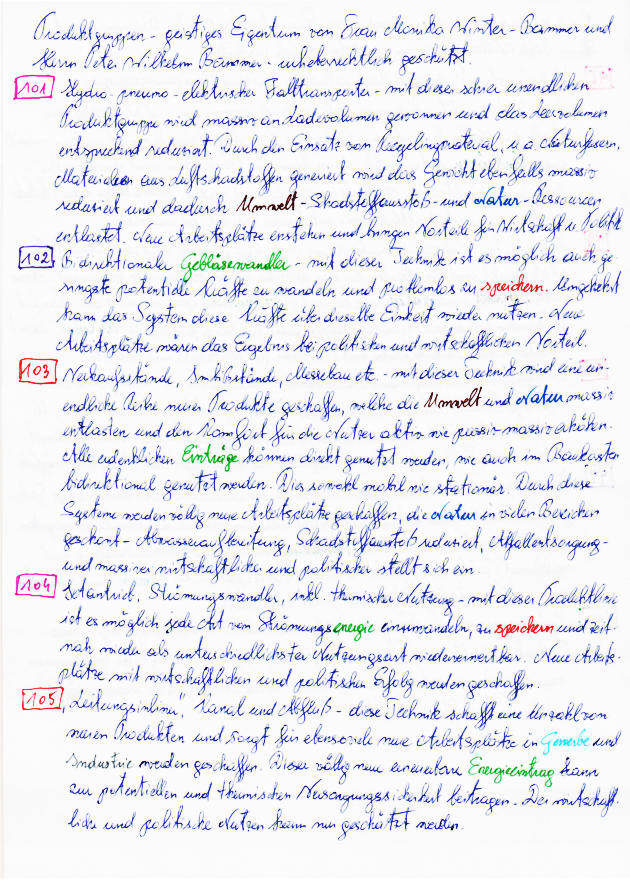 Produktgruppen - geistiges Eigentum von Frau Monika Winter - Bammer und
Herrn Peter Wilhelm Bammer - urheberrechtlich geschützt.
101 Hydro - pneumo - elektrischer Falltransporter - mit dieser schier unendlichen
Produktgruppe wird massiv an Ladevolumen gewonnen und das Leervolumen
entsprechend reduziert. Durch den Einsatz von Recyclingmaterial, u. a. Naturfasern,
Materialien aus Luftschadstoffen generiert wird das Gewicht ebenfalls massiv
reduziert und dadurch Umwelt - Schadstoffausstoß - und Natur - Ressourcen
entlastet. Neue Arbeitsplätze enstehen und bringen Vorteile für Wirtschaft u. Politik
102 Bidirektionaler Gebläsewandler - mit dieser Technik ist es möglich auch ge-
ringste potentielle Kräfte zu wandeln und problemlos zu speichern. Umgekehrt
kann das System diese Kräfte über dieselbe Einheit wieder nützen. Neue
Arbeitsplätze wären das Ergebnis bei politischen und wirtschaftlichen Vorteil.
103 Verkaufsstände, Imbißstände, Messebau etc. - mit dieser Technik wird eine un-
endliche Reihe neuer Produkte geschaffen, welche die Umwelt und Natur massiv
entlasten und den Komfort für die Nutzer aktiv wie passiv massiv erhöhen.
Alle erdenklichen Einträge können direkt genutzt werden, wie auch im Baukasten
bidirektional genutzt werden. Dies sowohl mobil wie stationär. Durch diese
Systeme werden völlig neue Arbeitsplätze geschaffen, die Natur in vielen Bereichen
geschont - Abwasseraufbereitung, Schadstoffausstoß reduziert, Abfallentsorgung -
und massiver wirtschaftlicher und politischer stellt sich ein.
104 Jetantrieb, Strömungswandler, inkl. thermischer Nutzung - mit dieser Produktlinie
ist es möglich jede Art von Strömungsenergie umzuwandeln, zu speichern und zeit-
nah wieder als unterschiedlichster Nutzungsart wiederverwertbar. Neue Arbeits-
plätze mit wirtschaftlichen und politischen Erfolg werden geschaffen.
105 "Leitungsinliner", Kanal und Abfluß - diese Technik schafft eine Unzahl von
neuen Produkten und sorgt für ebensoviele neue Arbeitsplätze in Gewerbe und
Industrie werden geschaffen. Dieser völlig neue erneuerbare Energieeintrag kann
zur potentiellen und thermischen Versorgungssicherheit beitragen. Der wirtschaft-
liche und politische Nutzen kann nur geschätzt werden.